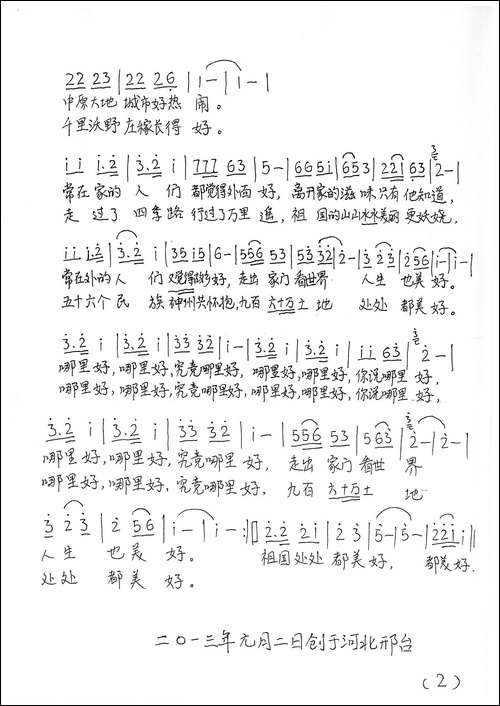 22 23 | 22 26 | i — | i — |
中原大地 城市好热 闹。
千里沃野 庄稼长得 好。
i i i.2 | 3.2 i | 777 63 | 5 — | 6651 | 653 | 221 63 | 2 — |
常在家的 人 们 都觉得外面 好，离开家的滋 味只有他知道，
走 过了 四季路 行过了万里 遥，祖 国的山山水水美丽 更妖娆，
i i i.2 | 3.2 i | 35 i5 | 6 — | 556 53 | 53 32 | 2 — | 3 2 3 | 2 56 | i — | i — |
常在外的 人 们 好，走出 家门 看世界 人生 也美 好。
五十六个民 族 神州共怀抱，九百 六十万土 地 处处 都美 好。
3.2 i | 3.2 i | 33 32 | i — | 3.2 i | 3.2 i | i i 63 | 2 — |
哪里 好，哪里好，究竟哪里好，哪里好，哪里好，你说哪里 好，
哪里 好，哪里好，究竟哪里好，哪里好，哪里好，你说哪里 好，
3.2 i | 3.2 i | 33 32 | i — | 556 53 | 5 63 | 2 — | 2 — |
哪里 好，哪里 好，究竟哪里 好，走出 家门 看世 界
哪里 好，哪里 好，究竟哪里 好，九百 六十万土 地
3 2 3 | 2 56 | i — | i — :|| 2.2 2i | 2 3 | 5 — | 5 — | 221 i ||
人生 也美 好。 祖国处处 都美 好， 都美好.
处处 都美 好。
二〇一三年元月二日创于河北邢台
(2)